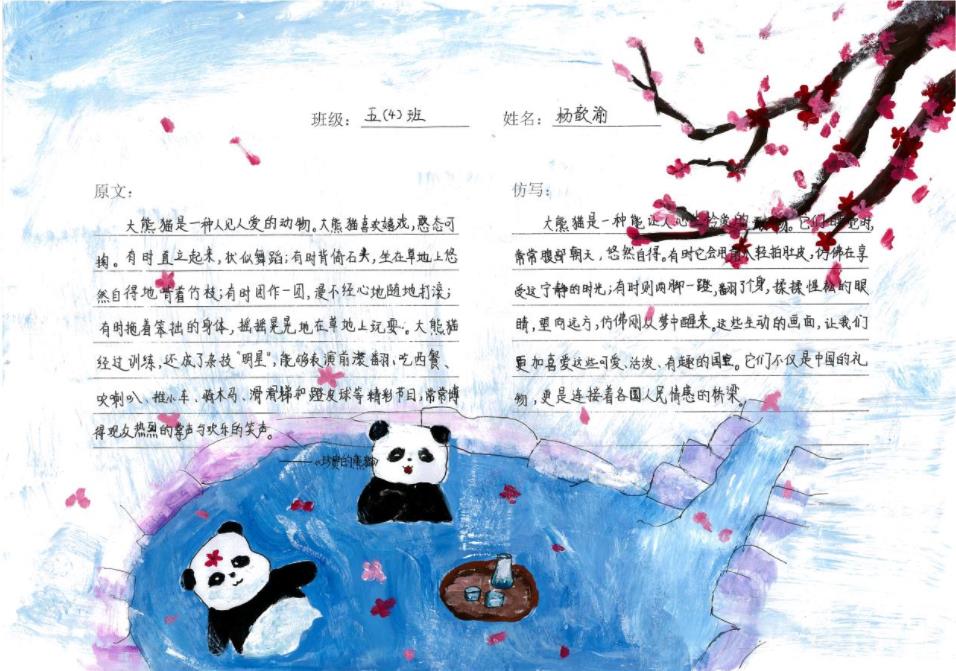 班级：五(4)班
姓名：杨歆渝
原文：
大熊猫是一种人见人爱的动物。大熊猫喜欢嬉戏，憨态可
掬。有时直立起来，状似舞蹈；有时背倚石头，坐在草地上悠
然自得地啃着竹枝；有时团作一团，漫不经心地随地打滚；
有时拖着笨拙的身体，摇摇晃晃地在草地上玩耍。大熊猫
经过训练，还成了杂技“明星”，能够表演前滚翻、吃西餐、
吹喇叭、推小车、骑木马、滑滑梯和蹬皮球等精彩节目，常常博
得观众热烈的掌声与欢乐的笑声。
——《珍贵的熊猫》
仿写：
大熊猫是一种能让人心生怜爱的动物。它们睡觉时，
常常腹部朝天，悠然自得。有时它会用轻拍肚皮，仿佛在享
受这宁静的时光；有时则两脚一蹬，翻了个身，揉揉惺忪的眼
睛，望向远方，仿佛刚从梦中醒来。这些生动的画面，让我们
更加喜爱这些可爱、活泼、有趣的国宝。它们不仅是中国的礼
物，更是连接着各国人民情感的桥梁。